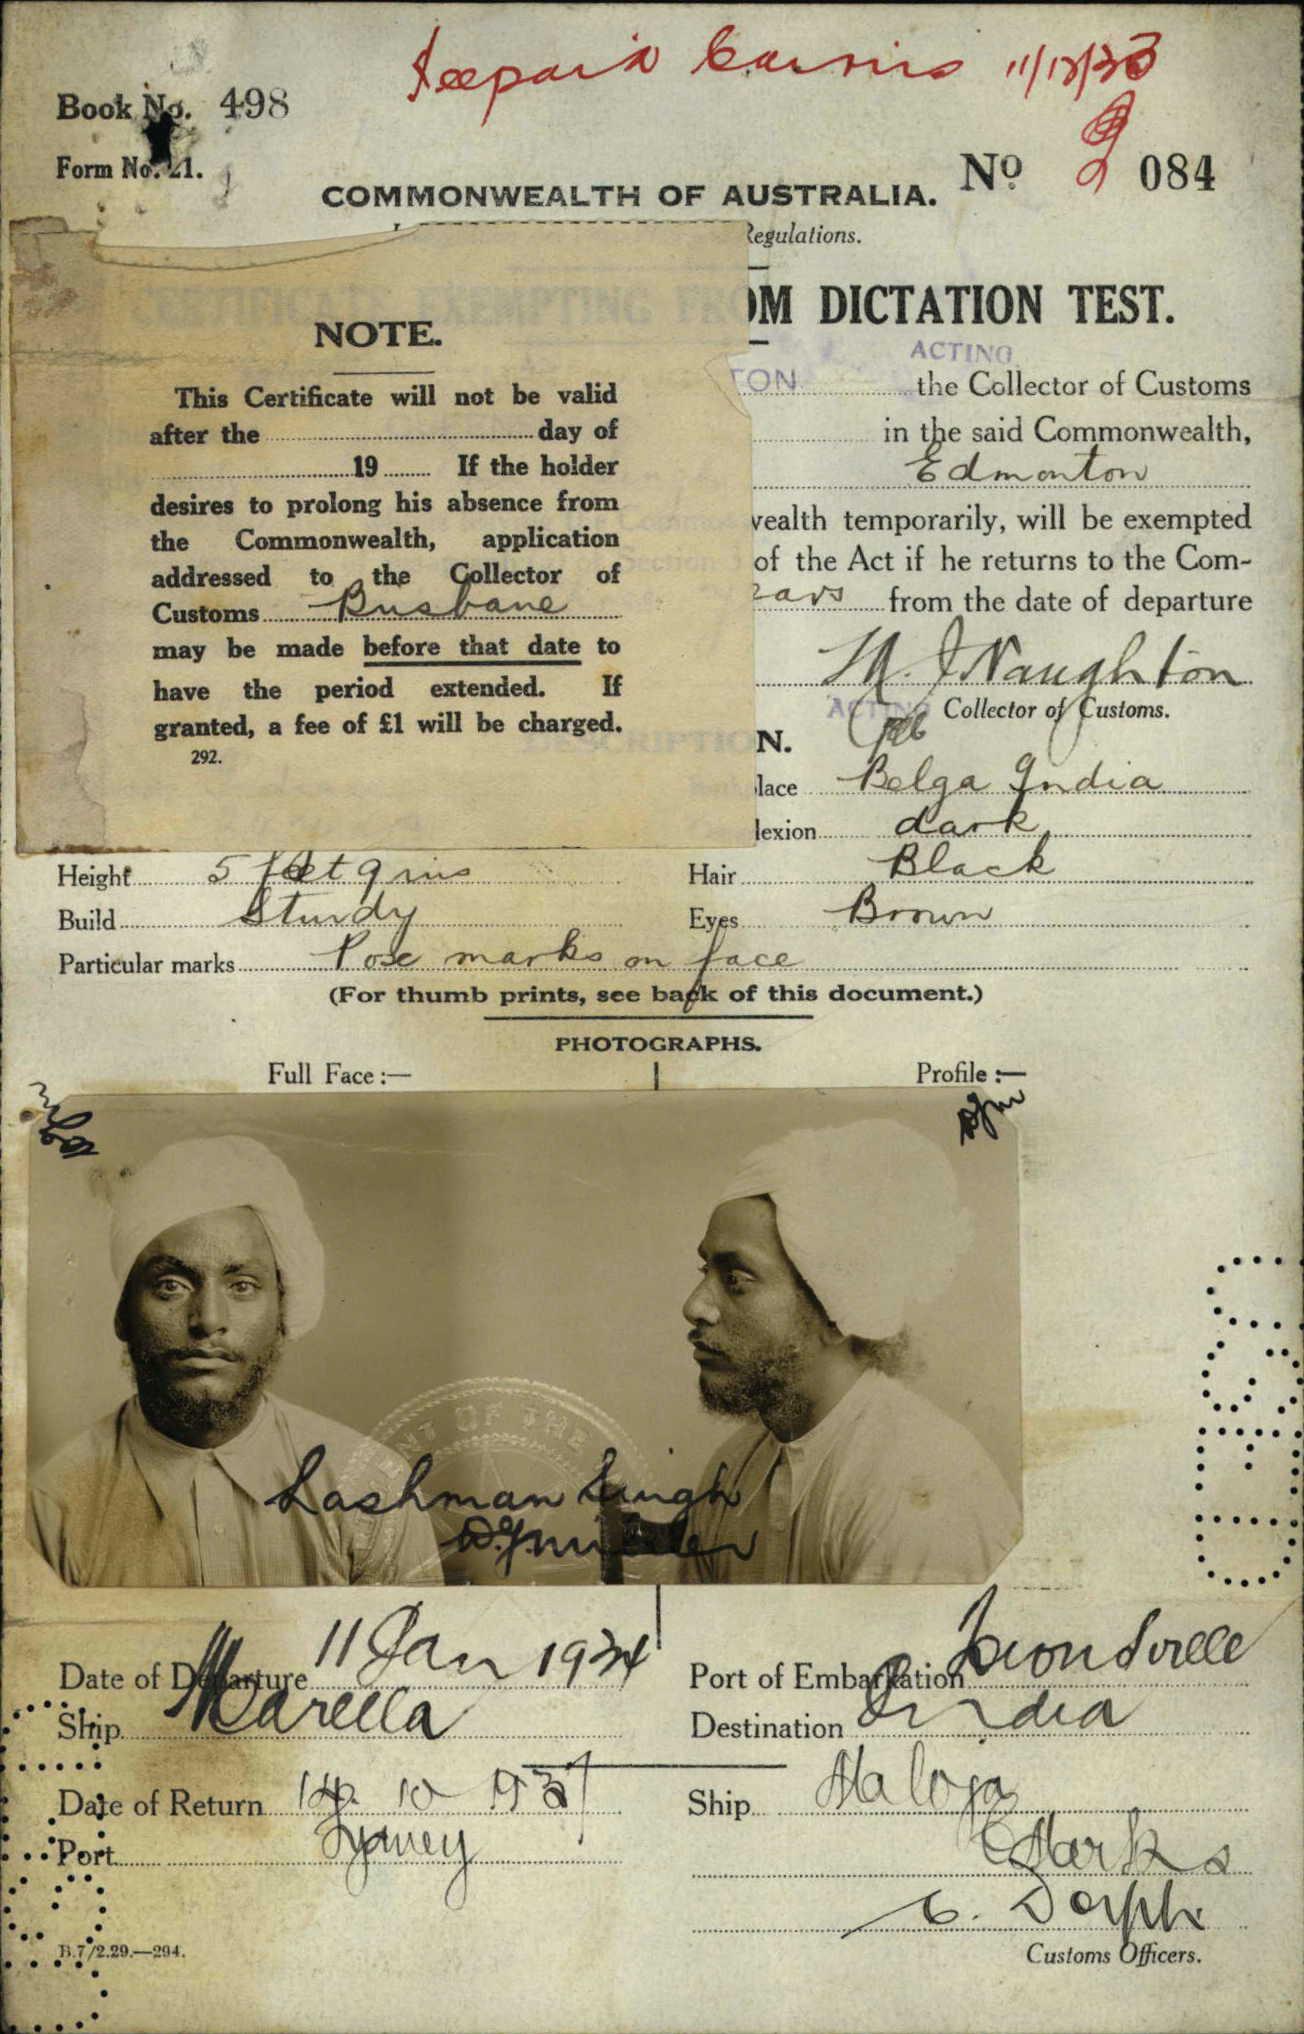 Book No. 498
Form No. 21.
COMMONWEALTH OF AUSTRALIA.
No 084
Regulations.
CERTIFICATE EXEMPTING FROM DICTATION TEST.
NOTE.
This Certificate will not be valid
after the day of
19 If the holder
desires to prolong his absence from
the Commonwealth, application
addressed to the Collector of
Customs Brisbane
may be made before that date to
have the period extended. If
granted, a fee of £1 will be charged.
292.
ACTING
TON the Collector of Customs
in the said Commonwealth,
Edmonton
wealth temporarily, will be exempted
of the Act if he returns to the Com-
ears from the date of departure
M. J Naughton
ACTING Collector of Customs.
DESCRIPTION.
place Belga India
lexion dark
Height 5 feet 9 ins
Hair Black
Build Sturdy
Eyes Brown
Particular marks Pox marks on face
(For thumb prints, see back of this document.)
PHOTOGRAPHS.
Full Face :—
Profile :—
Lashman Singh
Date of Departure 11 Jan 1934
Port of Embarkation
Ship Marella
Destination India
Date of Return 10 1937
Ship Maloja
Port Sydney
Customs Officers.
B.7/2.29.—294.